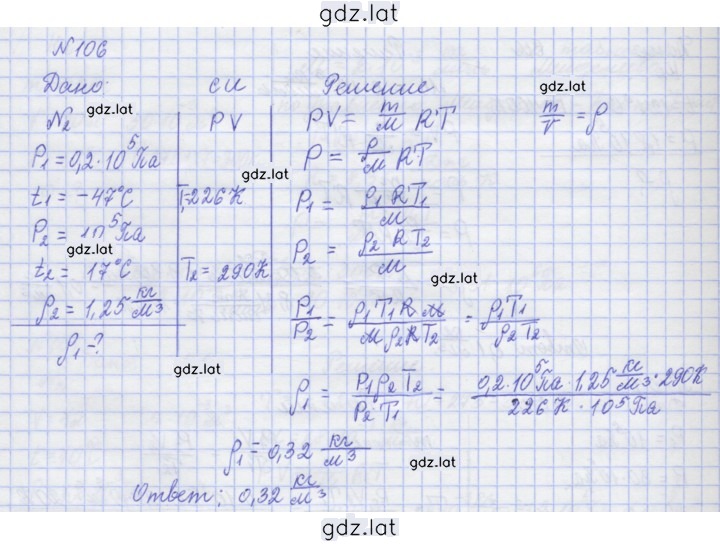 gdz.lat
N106
Дано: СИ Решение
gdz.lat
gdz.lat
N₂ PV PV = m/M RT m/V = ρ
P₁ = 0,2·10⁵ Па P = ρ/M RT
gdz.lat
t₁ = -47°C T₁=226K P₁ = ρ₁RT₁/M
P₂ = 10⁵ Па P₂ = ρ₂RT₂/M
gdz.lat
t₂ = 17°C T₂ = 290K
gdz.lat
ρ₂ = 1,25 кг/м³ P₁/P₂ = ρ₁T₁RM/Mρ₂RT₂ = ρ₁T₁/ρ₂T₂
ρ₁-?
gdz.lat
ρ₁ = P₁ρ₂T₂/P₂T₁ = 0,2·10⁵Па·1,25 кг/м³·290К/226К·10⁵Па
ρ₁ = 0,32 кг/м³
gdz.lat
Ответ: 0,32 кг/м³
gdz.lat